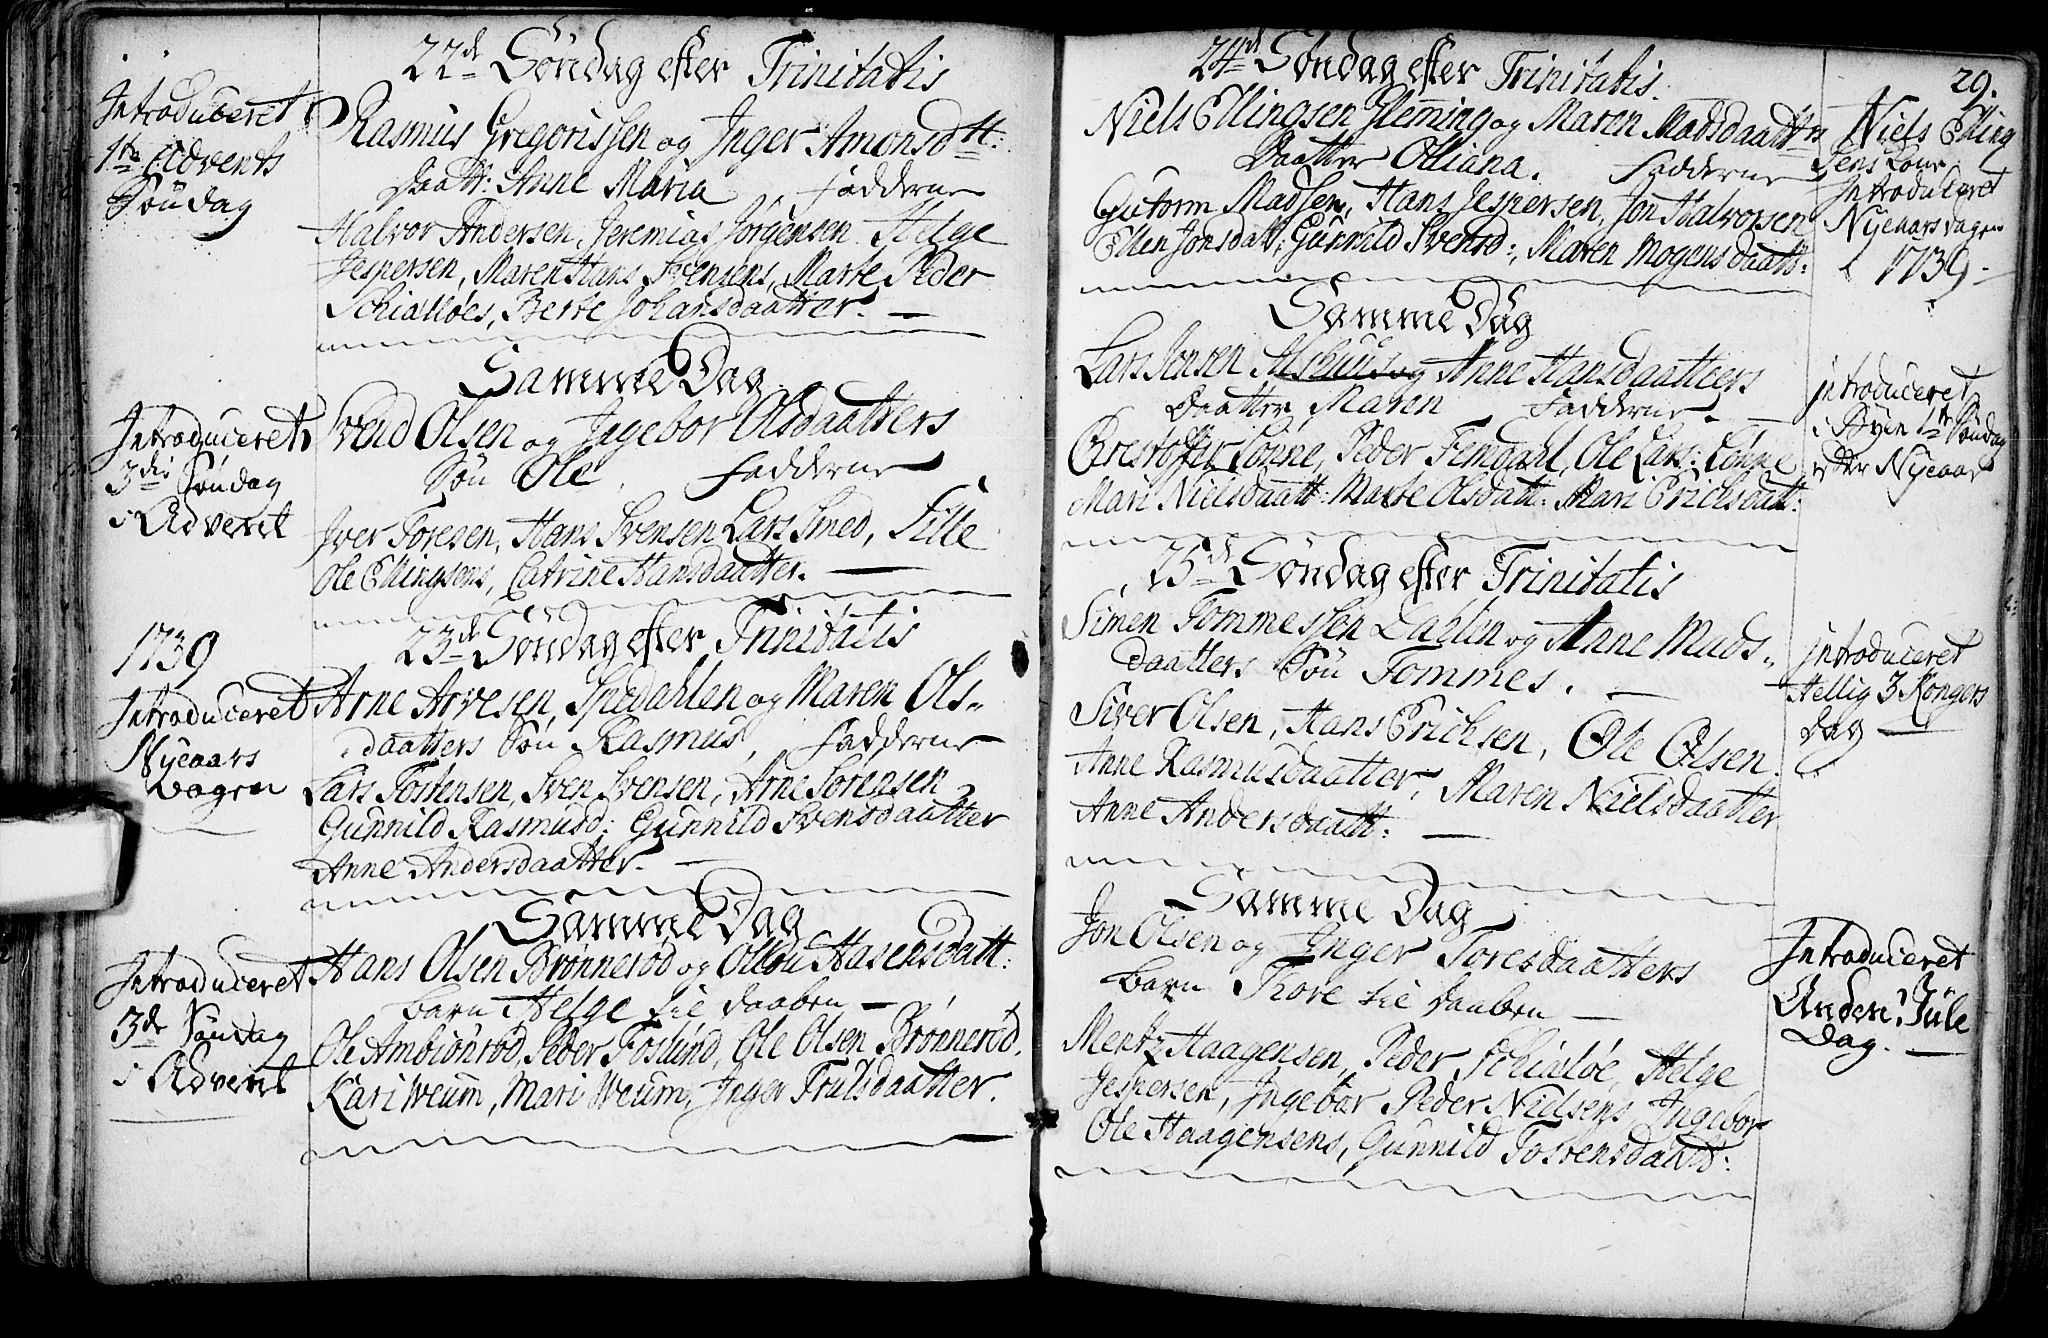 22de Söndag efter Trinitatis
Introduceret
1te Advents
Söndag
Rasmus Gregorissen og Inger Amonsdtt:
daatt: Anne Maria, Fadderne
Halvor Andersen, Jeremias Jörgensen Helge
Jespersen, Maren Hans Svensens, Marte Peder
Schialløes, Berte Johansdaatter. —
Samme Dag
Introduceret
3die Söndag
i Advent
Svend Olsen og Ingebor Olsdaatters
Sön Ole, Fadderne
Iver Toresen, Hans Svensen Lars Smed, Sille
Ole Ellingsens, Catrine Hansdaatter. —
23de Söndag efter Trinitatis
1739
Introduceret
Nyeaars
dagen
Arne Arvesen, Spedahlen og Maren Ols-
daatters Sön Rasmus, Fadderne
Lars Tostensen, Sven Svensen, Arne Sörensen
Gunnild Rasmusd: Gunnild Svensdaatter
Anne Andersdaatter. —
Samme Dag
Introduceret
3de Söndag
i Advent
Hans Olsen Brønnerød og Ollou Hasensdatt:
barn Helge til daaben —
Ole Ambiönröd, Peder Foslund, Ole Olsen Brønneröd,
Kari Weum, Mari Weum, Inger Trulsdaatter.
29.
24de Söndag efter Trinitatis.
Niels Ellingsen Fleming og Maren Madsdaatt:
Daatter Olliana. Fadderne
Gutorm Madsen, Hans Jespersen, Jon Halvorsen
Ellen Jonsdatt: Gunnild Svensd:, Maren Mogensdaatt:
Niels Elling
sens Kone
Introduceret
Nyeaarsdagen
1739 -
Samme Dag
Lars Jonsen og Anne Hansdaatters
Daatter, Maren Fadderne. —
Crestoffer Lønne, Peder Femdahl, Ole Lars: Lønne
Mari Nielsdaatt: Marte Olsdatt: Mari Erichsdatt:
introduceret
i Byen 1te Söndag
efter Nyeaar
25de Söndag efter Trinitatis
Simen Tommessen Dahlen og Anne Mads-
daatters Sön Tommes. —
Siver Olsen, Hans Erichsen, Ole Olsen.
Anne Rasmusdaatter, Maren Nielsdaatter
Anne Andersdaatt: —
introduceret
Hellig 3 Kongers
Dag —
Samme Dag
Jon Olsen og Inger Toresdaatters
barn Thore til daaben —
Mentz Haagensen, Peder Schialöe, Helge
Jespersen, Ingebor Peder Nielsens, Ingebor
Ole Haagensens, Gunnild Tostensdaatt:
Introduceret
Anden Jule
Dag. —